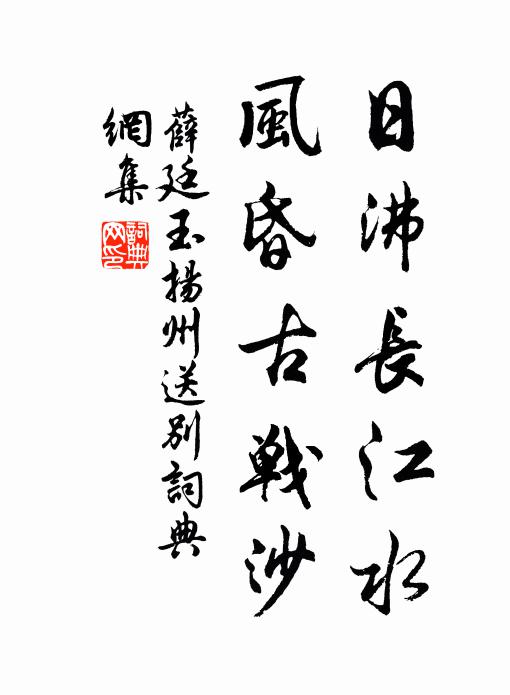 日沸長江水
風昏古戰沙
薛廷玉揚州送别詞典
網集
詞典
网印